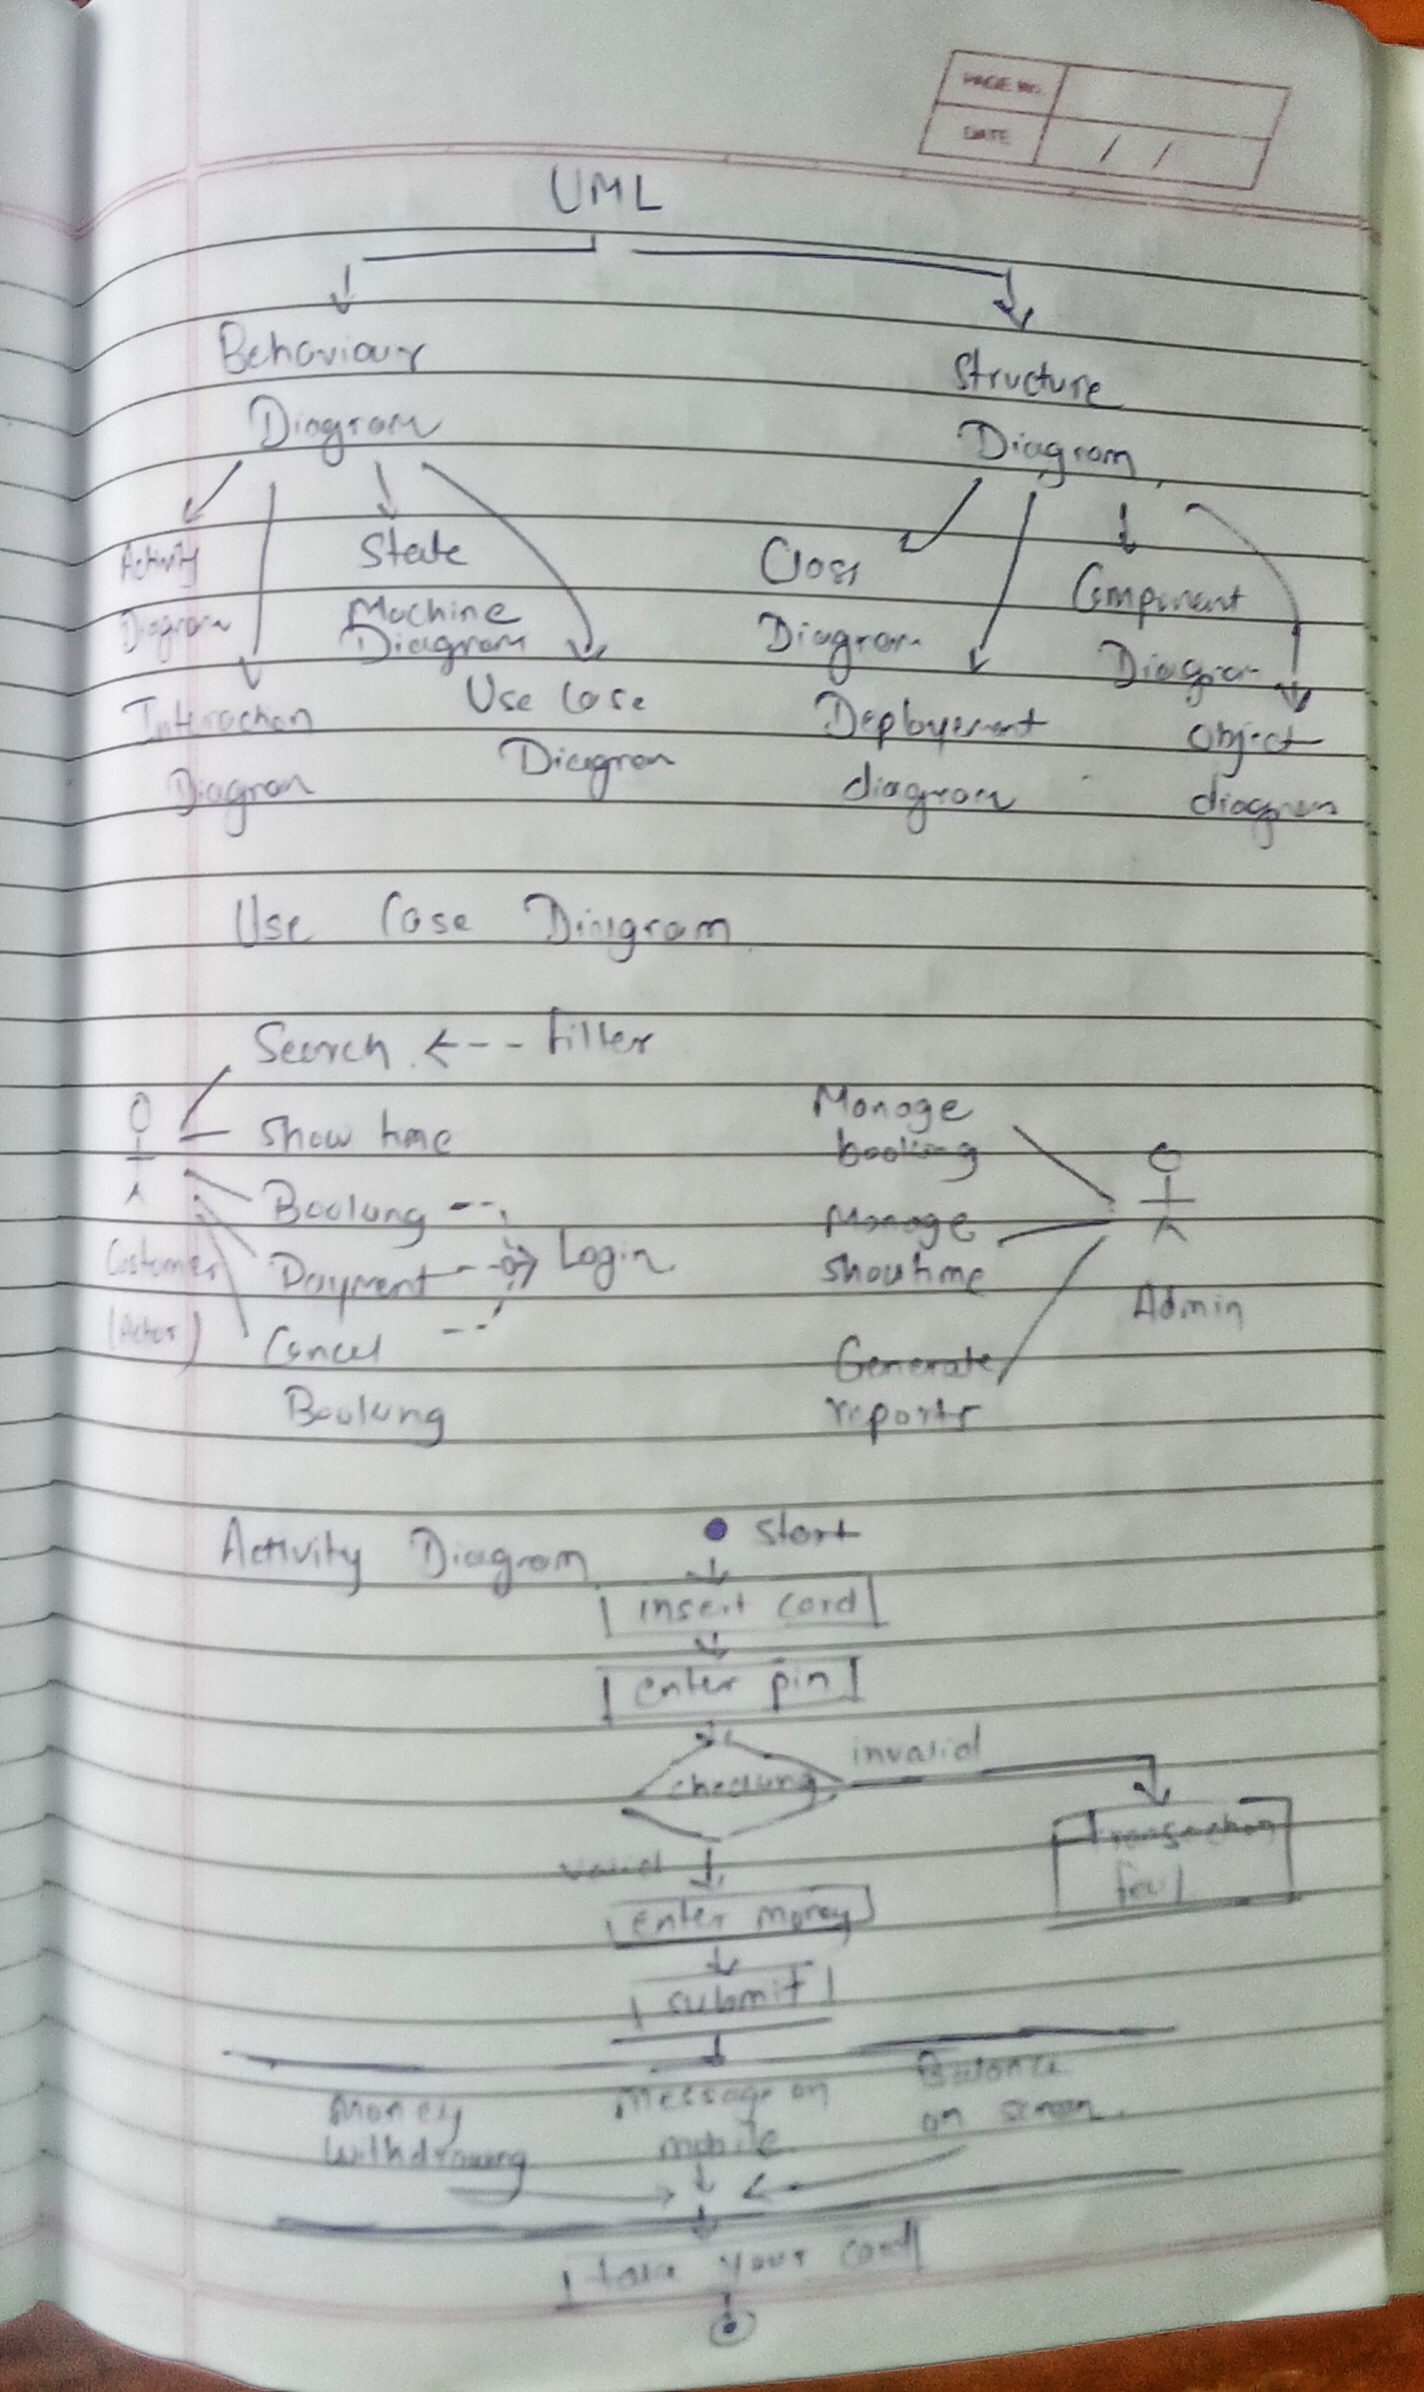 PAGE NO.
DATE / /
UML
Behaviour
Diagram
Structure
Diagram
Activity
Diagram
State
Machine
Diagram
Interaction
Diagram
Use Case
Diagram
Class
Diagram
Component
Diagram
Deployement
diagram
Object
diagram
Use Case Diagram
Search <--- Filter
Show time
Booking
Payment
Login
Cancel
Booking
Customer
(Actor)
Manage
booking
Manage
showtime
Generate
reports
Admin
Activity Diagram
Start
insert card
enter pin
checking
invalid
Transaction
fail
valid
enter money
submit
Money
withdrawing
Message on
mobile
Balance
on screen.
take your card